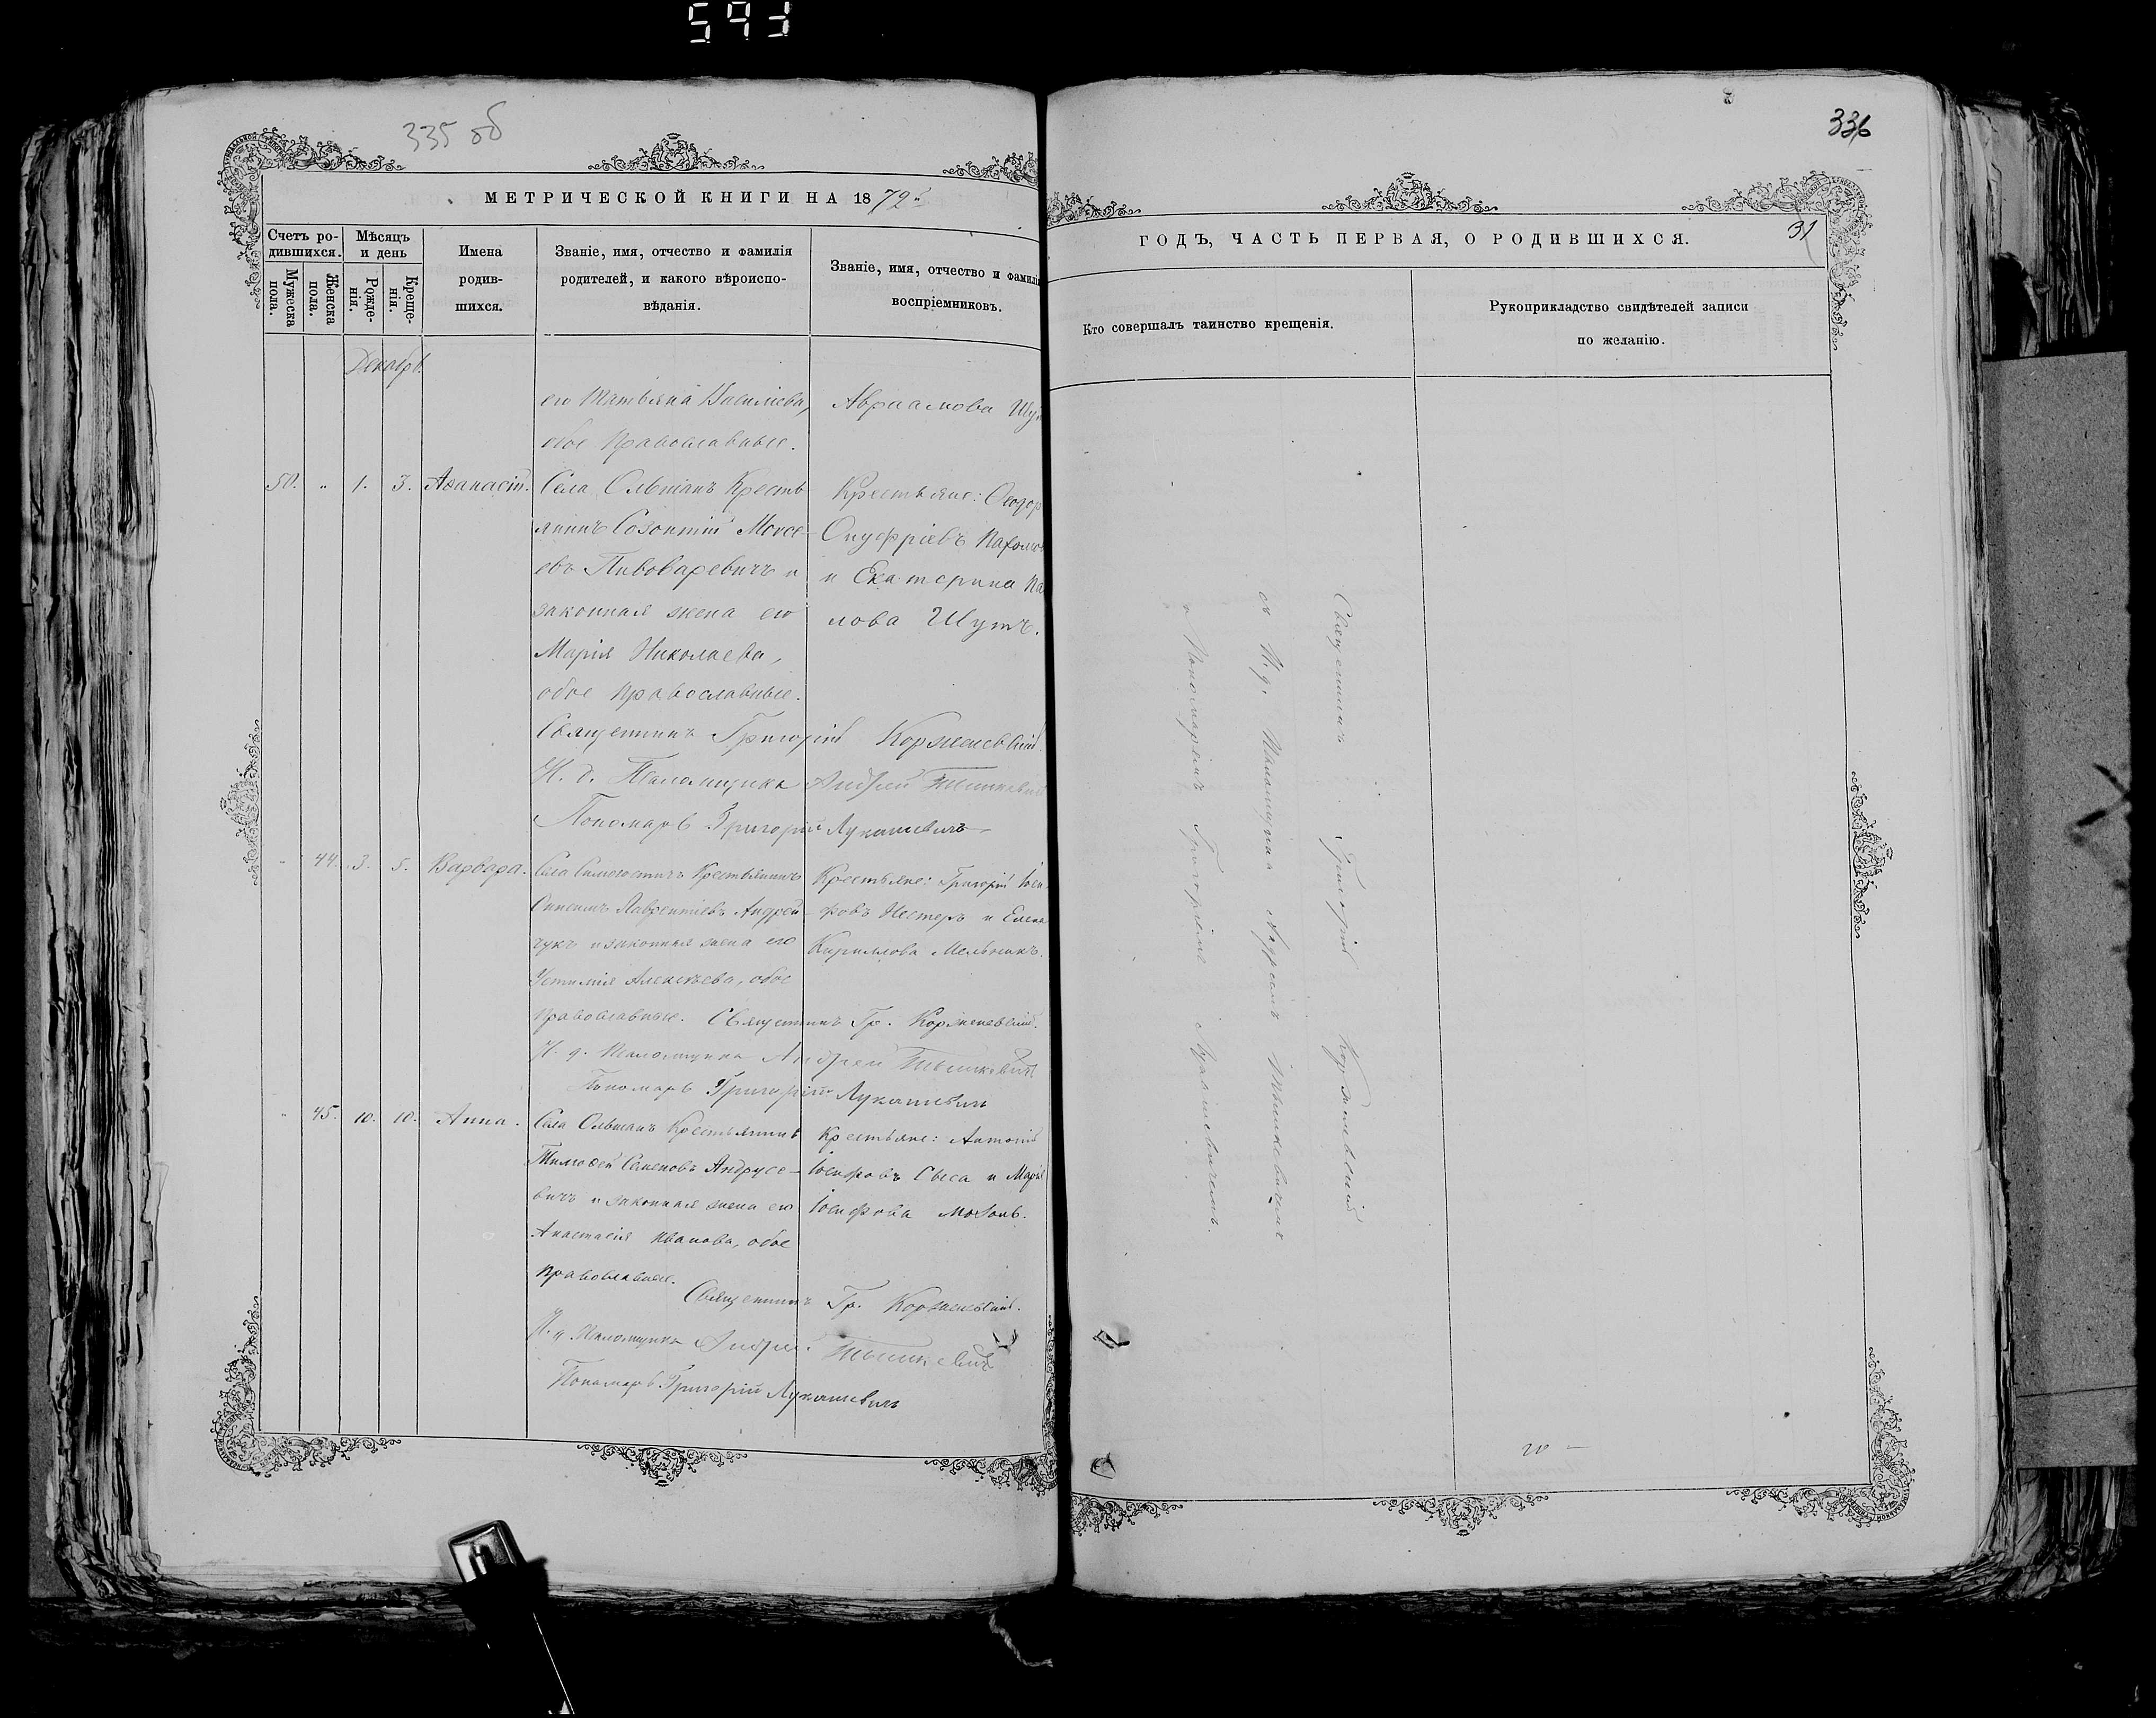 593
335 об
МЕТРИЧЕСКОЙ КНИГИ НА 1872
Счетъ ро-
дившихся.
Мужеска
пола.
Женска
пола.
Мѣсяцъ
и день
Рожде-
нія.
Креще-
нія.
Имена
родив-
шихся.
Званіе, имя, отчество и фамилія
родителей, и какого вѣроиспо-
вѣданія.
Званіе, имя, отчество и фамилія
воспріемниковъ.
Декабрь.
его Татьяна Василіева,
обое Православные.
Авраамова
50. „ 1. 3. Аѳанасій.
Села Ольшанъ Кресть-
янинъ Созонтій Моисе-
евъ Пивоваревичъ и
законная жена его
Марія Николаева,
обое Православные.
Крестьяне: Ѳеодоръ
Онуфріевъ
и Екатерина
лова Шутъ.
Священникъ Григорій Корженевскій.
И. д. Псаломщика Андрей Тышкевичъ
Пономарь Григорій Лукашевичъ
„ 44. 3. 5. Варвара.
Села Симоговичъ Крестьянинъ
Онисимъ Лаврентіевъ Андрей-
чукъ и законная жена его
Устинія Алексѣева, обое
Православные.
Крестьяне: Григорій Іоси-
фовъ Нестеръ и Елена
Кириллова Мельникъ.
Священникъ Гр. Корженевскій.
И. д. Псаломщика Андрей Тышкевичъ
Пономарь Григорій Лукашевичъ
„ 45. 10. 10. Анна.
Села Ольшанъ Крестьянинъ
Тимоѳей Семеновъ Андрусе-
вичъ и законная жена его
Анастасія Иванова, обое
Православные.
Крестьяне: Антоній
Іосифовъ Сыса и Марія
Іосифова
Священникъ Гр. Корженевскій.
И. д. Псаломщика Андрей Тышкевичъ
Пономарь Григорій Лукашевичъ
336
31
ГОДЪ, ЧАСТЬ ПЕРВАЯ, О РОДИВШИХСЯ.
Кто совершалъ таинство крещенія.
Рукоприкладство свидѣтелей записи
по желанію.
Священникъ Григорій Корженевскій
съ И. д. Псаломщика Андреемъ Тышкевичемъ
и Пономаремъ Григоріемъ Лукашевичемъ.